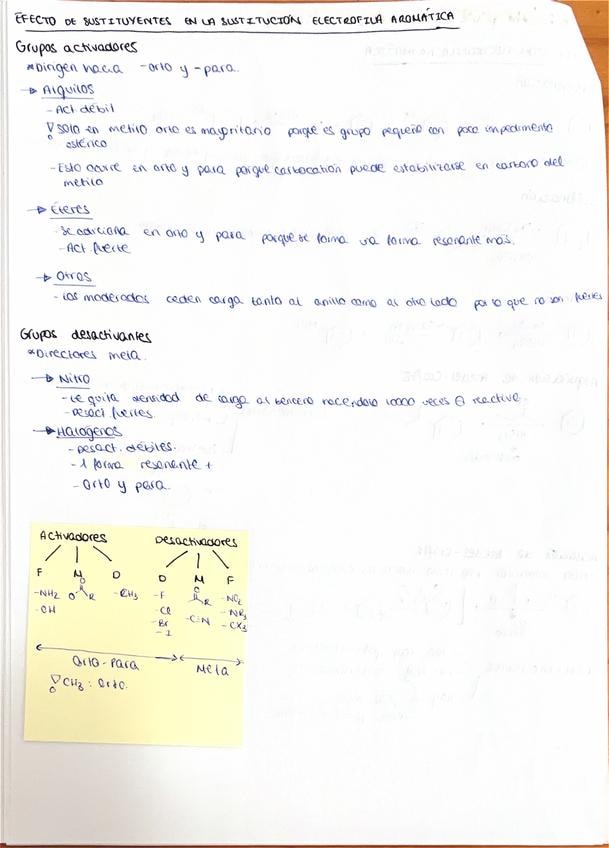 EFECTO DE SUSTITUYENTES EN LA SUSTITUCIÓN ELECTROFILA AROMÁTICA
Grupos activadores
*Dirigen hacia -orto y -para.
→ Alquilos
- Act. débil
Solo en metilo orto es mayoritario porque es grupo pequeño con poco impedimento
estérico
- Esto ocurre en orto y para porque carbocatión puede estabilizarse en carbono del
metilo
→ Éteres
- Se adiciona en orto y para porque se forma una forma resonante más.
- Act. fuerte
→ Otros
- Los moderados ceden carga tanto al anillo como al otro lado por lo que no son fuertes
Grupos desactivantes
*Directores meta.
→ Nitro
- Le quita densidad de carga al benceno haciendolo 10000 veces ⊖ reactivo.
- Desact. fuertes.
→ Halógenos
- Desact. débiles.
- 1 forma resonante +
- Orto y para.
Activadores Desactivadores
F M D D M F
-NH2 -CH3 -F -NO2
-OH -Cl -C≡N -NR3
-Br -CX3
-I
Orto-Para Meta
CH3: Orto.